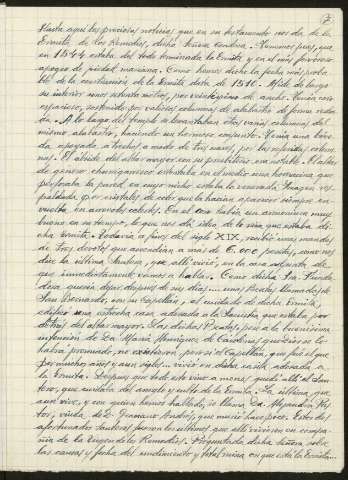 7
Hasta aquí las preciosas noticias que en su testamento nos da de la
Ermita de los Remedios, dicha Señora fundora. Resumen pues, que
en 1544 estaba del todo terminada la Ermita y en el más fervoroso
apogeo de piedad mariana. Como hemos dicho la fecha más proba
ble de la construcción de la Ermita, data de 1510. Mide de largo
su interior unos setenta metros, por veintiquinto de ancho. Tenía coro
espacioso, sostenido por valiosas columnas de alabastro de forma redon
da. A lo largo del templo se levantaban otras varias columnas del
mismo alabastro, haciendo un hermoso conjunto. Tenía una bóve
da apoyada, a trechos, a modo de tres naves, por las referidas colum
nas. El ábside del altar mayor con su presbiterio era notable. El altar
de género churrigueresco ostentaba en el medio una hornacina que
perforaba la pared, en cuyo nicho estaba la venerada Imagen res
paldada por cristales de color que la hacían aparecer siempre en
vuelta en arrebol celestes. En el coro había un armonium muy
bueno en su tiempo, lo que nos da idea de la vida que estaba di
cha Ermita. Todavía a fines del siglo XIX, recibió unas mandas
de tres devotos que ascendían a más de 6.000 pesetas, como nos
dice la última Santera, que allí vivió, en la casa adjunta de
que inmediatamente vamos a hablar. Como dicha Sra. Funda
dora quería dejar, después de sus días.... unas Beatas llamadas de
San Bernardo, con su Capellán, al cuidado de dicha Ermita,
edificó una estrecha casa adosada a la Ermita, que estaba por
detrás del altar mayor. Las dichas Beatas, pese a la buenísima
intención de Dª María Manríquez de Cárdenas, que Dios se lo
habrá premiado, no existieron, pero sí el Capellán, que fue el que
por muchos años y aun siglos... vivió en dicha casita adosada a
la Ermita. Después que todo esto vino a menos quedó allí el San
tero, que cuidaba del aseo y culto de la Ermita. La última, que
aun vive, y con quien hemos hablado, se llama Dª Alejandra
viuda de D. Germano Andrés, que murió hace poco. Estos dos
afortunados santeros fueron los últimos que allí vivieron en compa
ñía de la Virgen de los Remedios. Preguntada dicha Señora sobre
las causas y fecha del hundimiento y total ruina en que está la Ermita